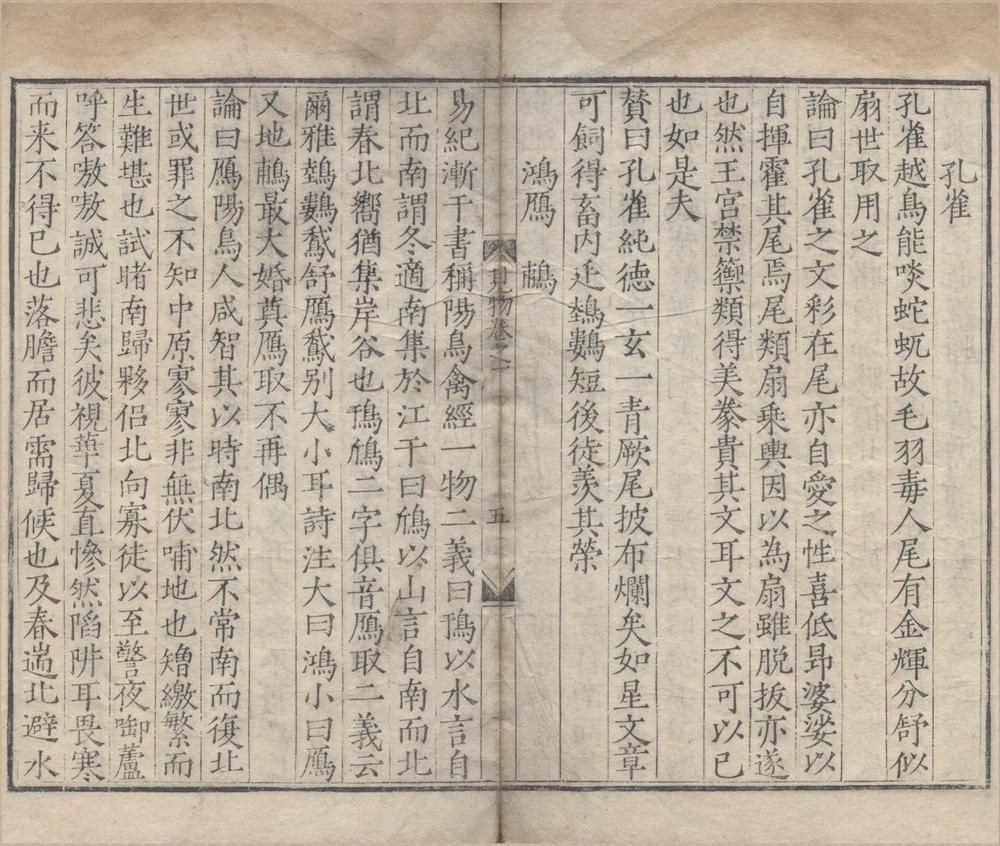 孔雀
孔雀越鳥能啖蛇虺故毛羽毒人尾有金輝分舒似
扇世取用之
論曰孔雀之文彩在尾亦自愛之性喜低昂婆娑以
自揮霍其尾焉尾類扇乘輿因以為扇雖脫拔亦遂
也然王宮禁籞類得美豢貴其文耳文之不可以已
也如是夫
贊曰孔雀純德一玄一青厥尾披布爛矣如星文章
可飼得畜內廷鷞短後徒羨其榮
鴻鴈 鷫
見物卷之一 五
易紀漸干書稱陽鳥禽經一物二義曰鳱以水言自
北而南謂冬適南集於江干曰鳻以山言自南而北
謂春北嚮猶集岸谷也鳱鳻二字俱音鴈取二義云
爾雅鵱鷜鵞舒鴈鵞別大小耳詩注大曰鴻小曰鴈
又地鷫最大婚奠鴈取不再偶
論曰鴈陽鳥人咸智其以時南北然不常南而復北
世或罪之不知中原寥寥非無伏哺地也矰繳繁而
生難堪也試睹南歸夥侶北向寡徒以至警夜啣蘆
呼答嗷嗷誠可悲矣彼視華夏直慘然陷阱耳畏寒
而来不得已也落膽而居需歸候也及春遄北避水